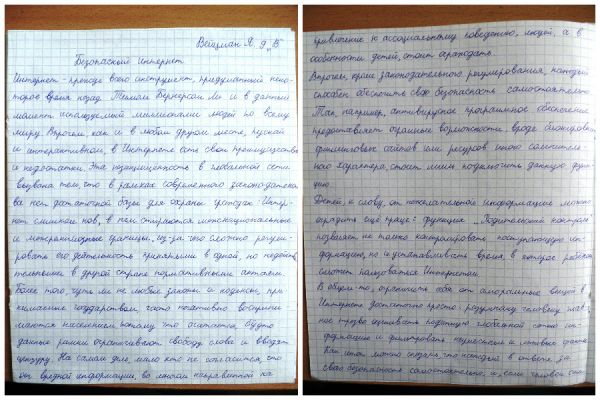 Вейцман Я. 9 „В"
Безопасный Интернет.
Интернет - прежде всего инструмент, придуманный неко-
торое время назад Тимом Бернерсом Ли и в данный
момент используемый миллионами людей по всему
миру. Впрочем, как и в любом другом месте, пускай
и интерактивном, в Интернете есть свои преимущества
и недостатки. Эта незащищенность в глобальной сети
вызвана тем, что в рамках современного законодательст-
ва нет достаточной базы для охраны граждан. Интер-
нет слишком нов, в нем стираются межнациональные
и межрасовые границы, из-за чего сложно регули-
ровать его деятельность принятыми в одной, но недейст-
вительными в другой стране нормативными актами.
Более того, чуть ли не любые законы и кодексы, при-
нимаемые государством, часто негативно восприни-
маются населением, потому что считается, будто
данные рамки ограничивают свободу слова и вводят
цензуру. На самом деле, мало кто не согласится, что
от вредной информации, во многом направленной на
привлечение к ассоциальному поведению, людей, а в
особенности детей, стоит ограждать.
Впрочем, кроме законодательного регулирования, каждый
способен обеспечить свою безопасность самостоятельно.
Так, например, антивирусное программное обеспечение
предоставляет огромные возможности, вроде блокировки
фишинговых сайтов или ресурсов иного сомнитель-
ного характера, стоит лишь подключить данную функ-
цию.
Детей, к слову, от нежелательной информации можно
оградить ещё проще: функция „Родительский контроль"
позволяет не только контролировать поступающую ин-
формацию, но и устанавливать время, в которое ребенок
сможет пользоваться Интернетом.
В общем-то, ограничить себя от аморальных вещей в
Интернете достаточно просто: разумному человеку
трезво оценивать глобальной сетью ин-
формацию и фильтровать
как итог можно сказать, что каждый в ответе за
свою безопасность самостоятельно, и, если человек